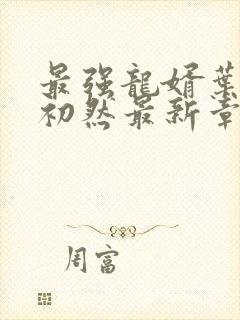 最强龍婿葉
初然最新章
周富